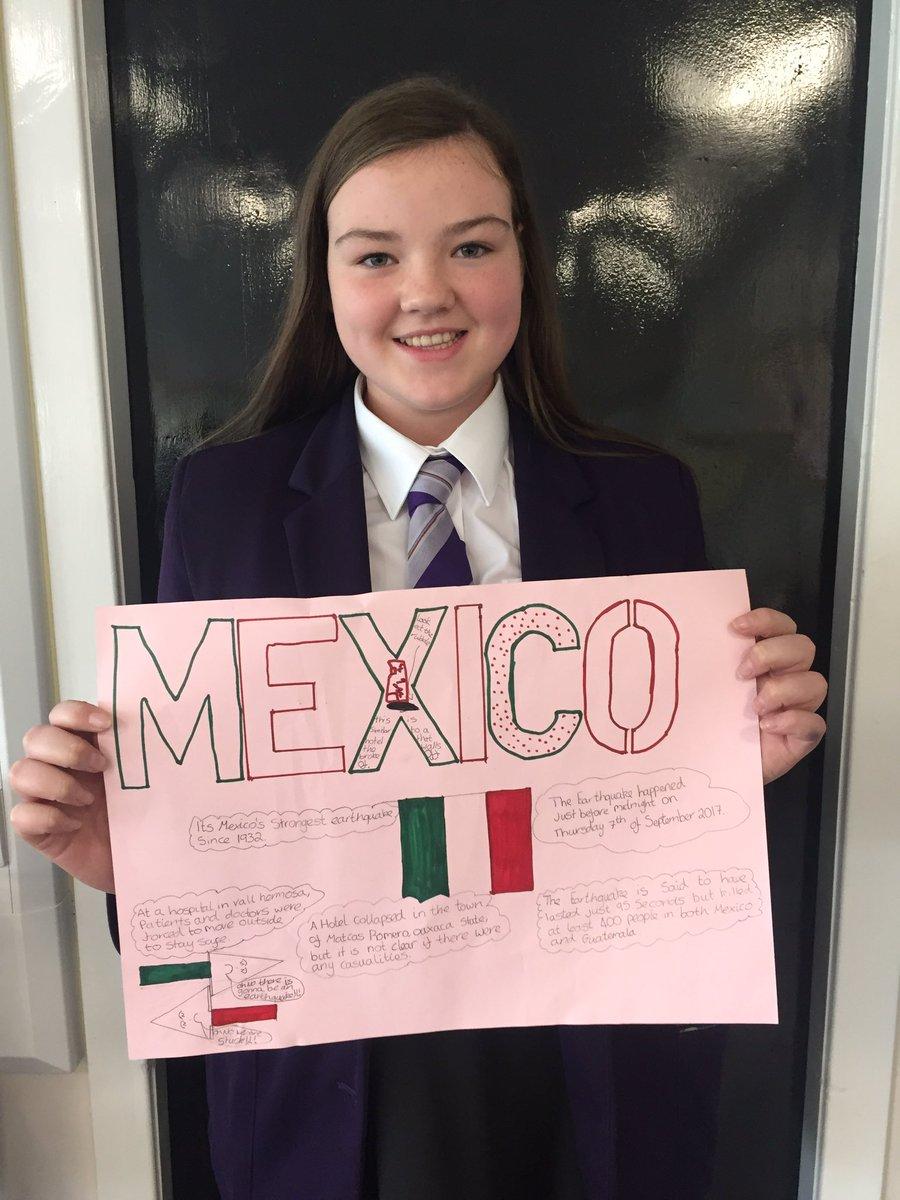 MEXICO
Look
at the
This is
similar to a
hotel that
the walls
broke off
of.
Its Mexico's Strongest earthquake
Since 1932.
The Earthquake happened
Just before midnight on
Thursday 7th of September 2017.
At a hospital in vall hermosa,
Patients and doctors were
forced to move outside
to stay safe.
A Hotel collapsed in the town
of Matcas Pomera, oaxaca State,
but it is not clear if there were
any casualities.
The Earthquake is Said to have
lasted just 95 Seconds but killed
at least 400 people in both Mexico
and Guatemala
oh no there is
gonna be an
earthquake!!!
stuck!!!